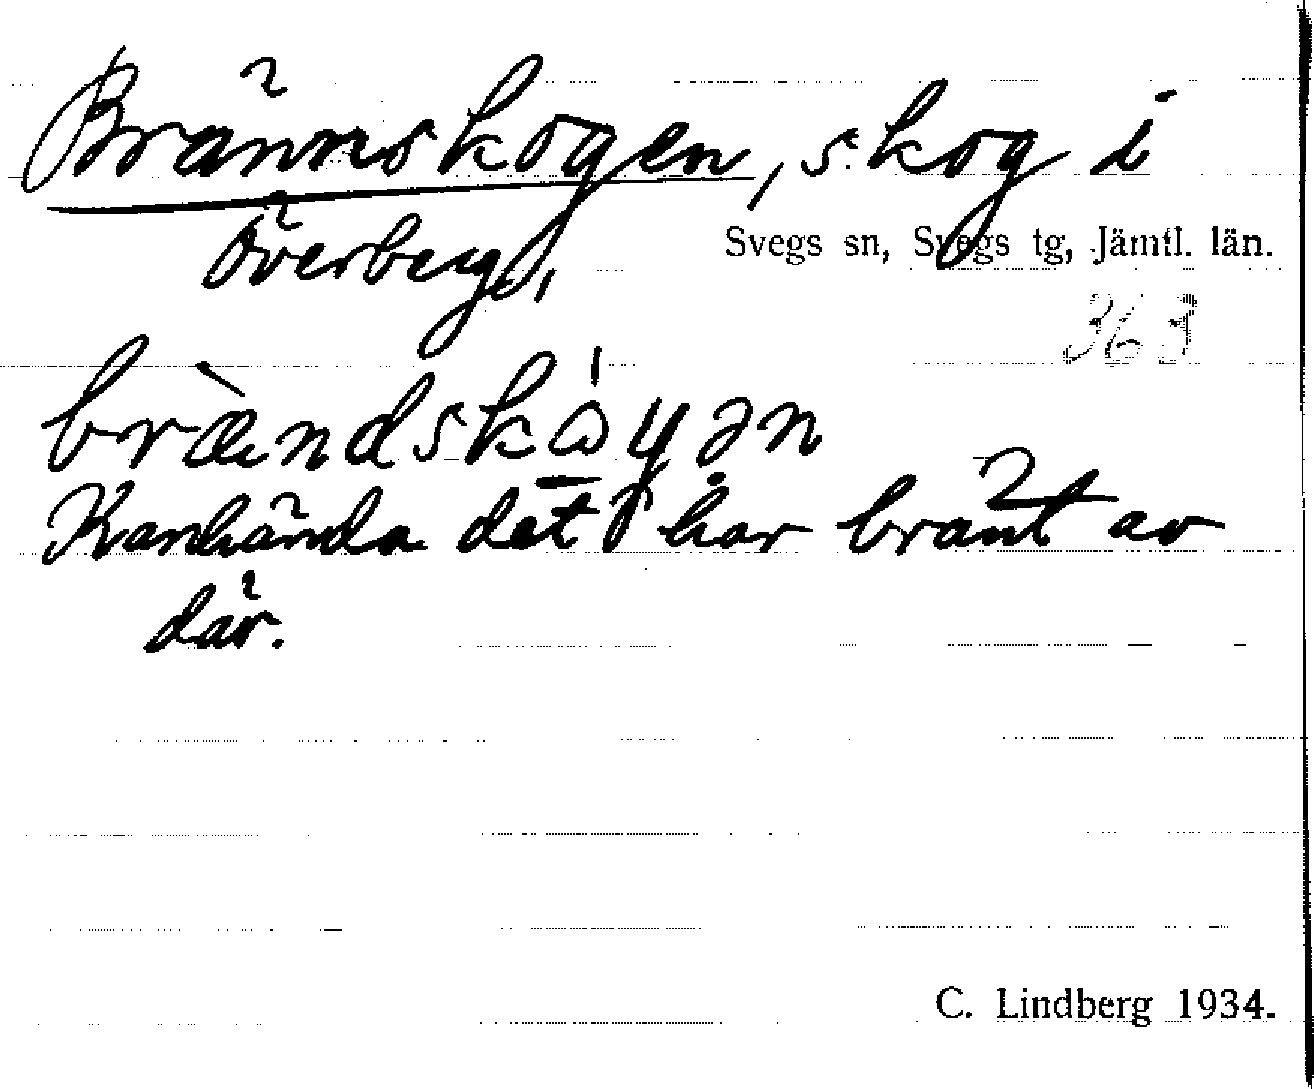 Brännskogen, skog i
Överberg,
Svegs sn, Svegs tg, Jämtl. län.
363
Kanhända det har bränt av
där.
C. Lindberg 1934.